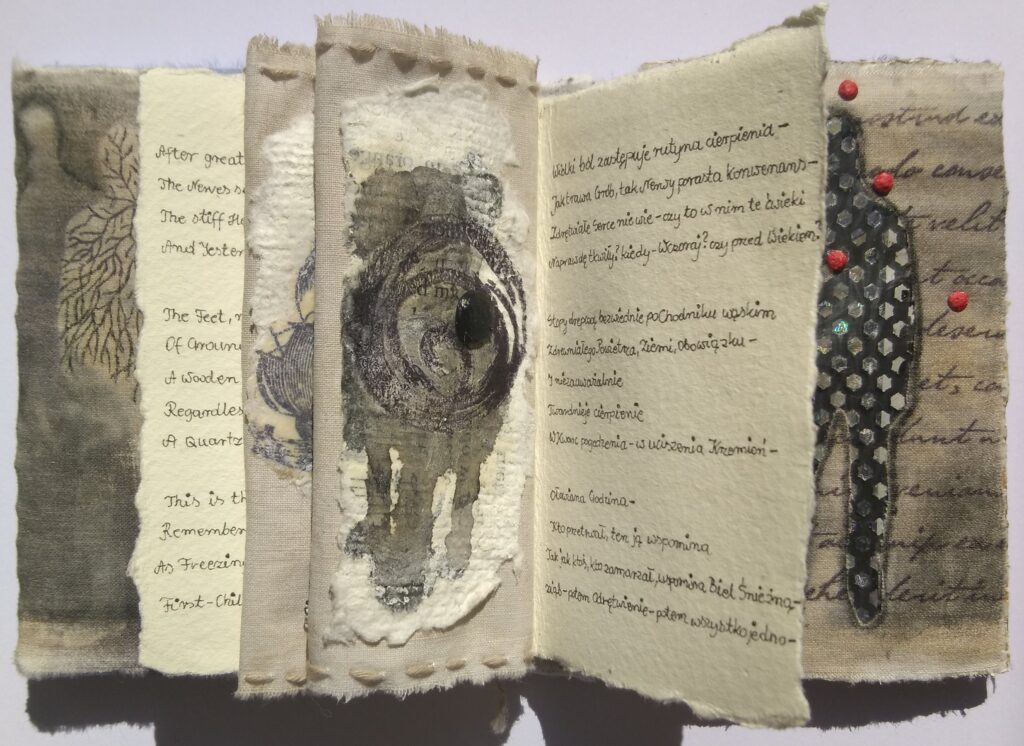 After great
The Nerves s
The stiff He
And Yester
The Feet,
Of Groun
A Wooden
Regardles
A Quartz
This is th
Remember
As Freezin
First-Chil
Wielki ból zastępuje rutyna cierpienia-
Jak trawa Grób, tak Nerwy porasta Konwenans-
Zdrętwiałe Serce nie wie-czy to w nim te ćwieki
Naprawdę tkwiły? kiedy-Wczoraj? czy przed Wiekiem?
Stopy drepczą bezwiednie po Chodniku wąskim
Zdrewniałego Powietrza, Ziemi, Obowiązku-
I niezauważalnie
Twardnieje cierpienie
W Kwarc pogodzenia-w uciszenia Krzemień-
Ołowiana Godzina-
Kto przetrwał, ten ją wspomina
Tak jak ktoś, kto zamarzał, wspomina Biel Śnieżną-
ziąb-potem Odrętwienie-potem wszystko jedno-
nostrud ex
conse
velit
occa
deseru
cu